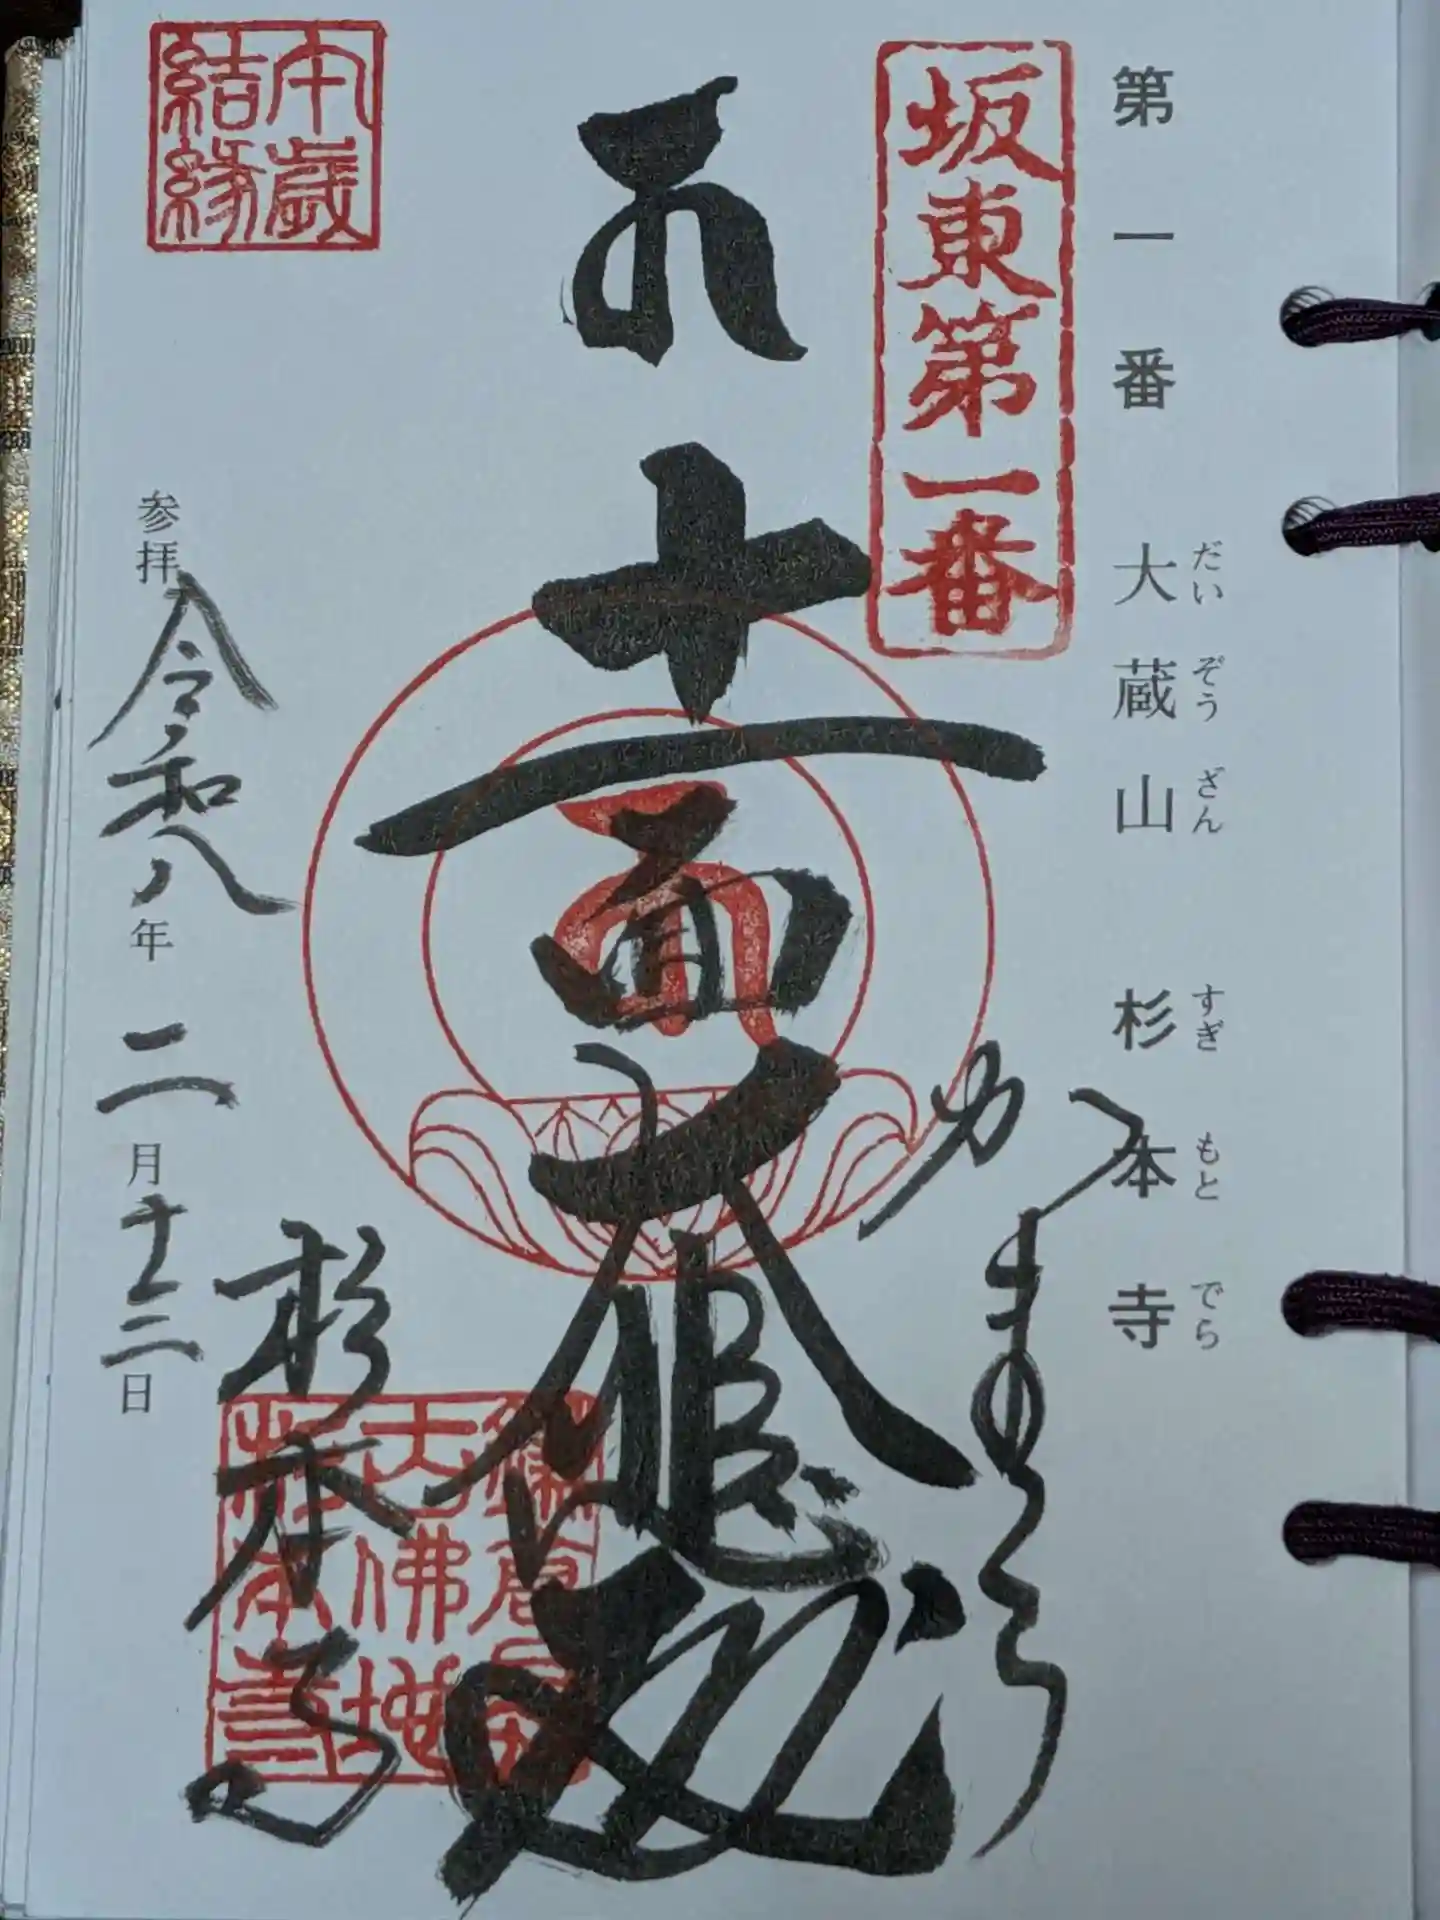 だいぞうざん すぎもとでら
第一番 大蔵山 杉本寺
坂東第一番
十一面大悲殿
鎌倉最
古佛地
杉本寺
杉本寺
午歳
結縁
参拝 令和八年二月十三日